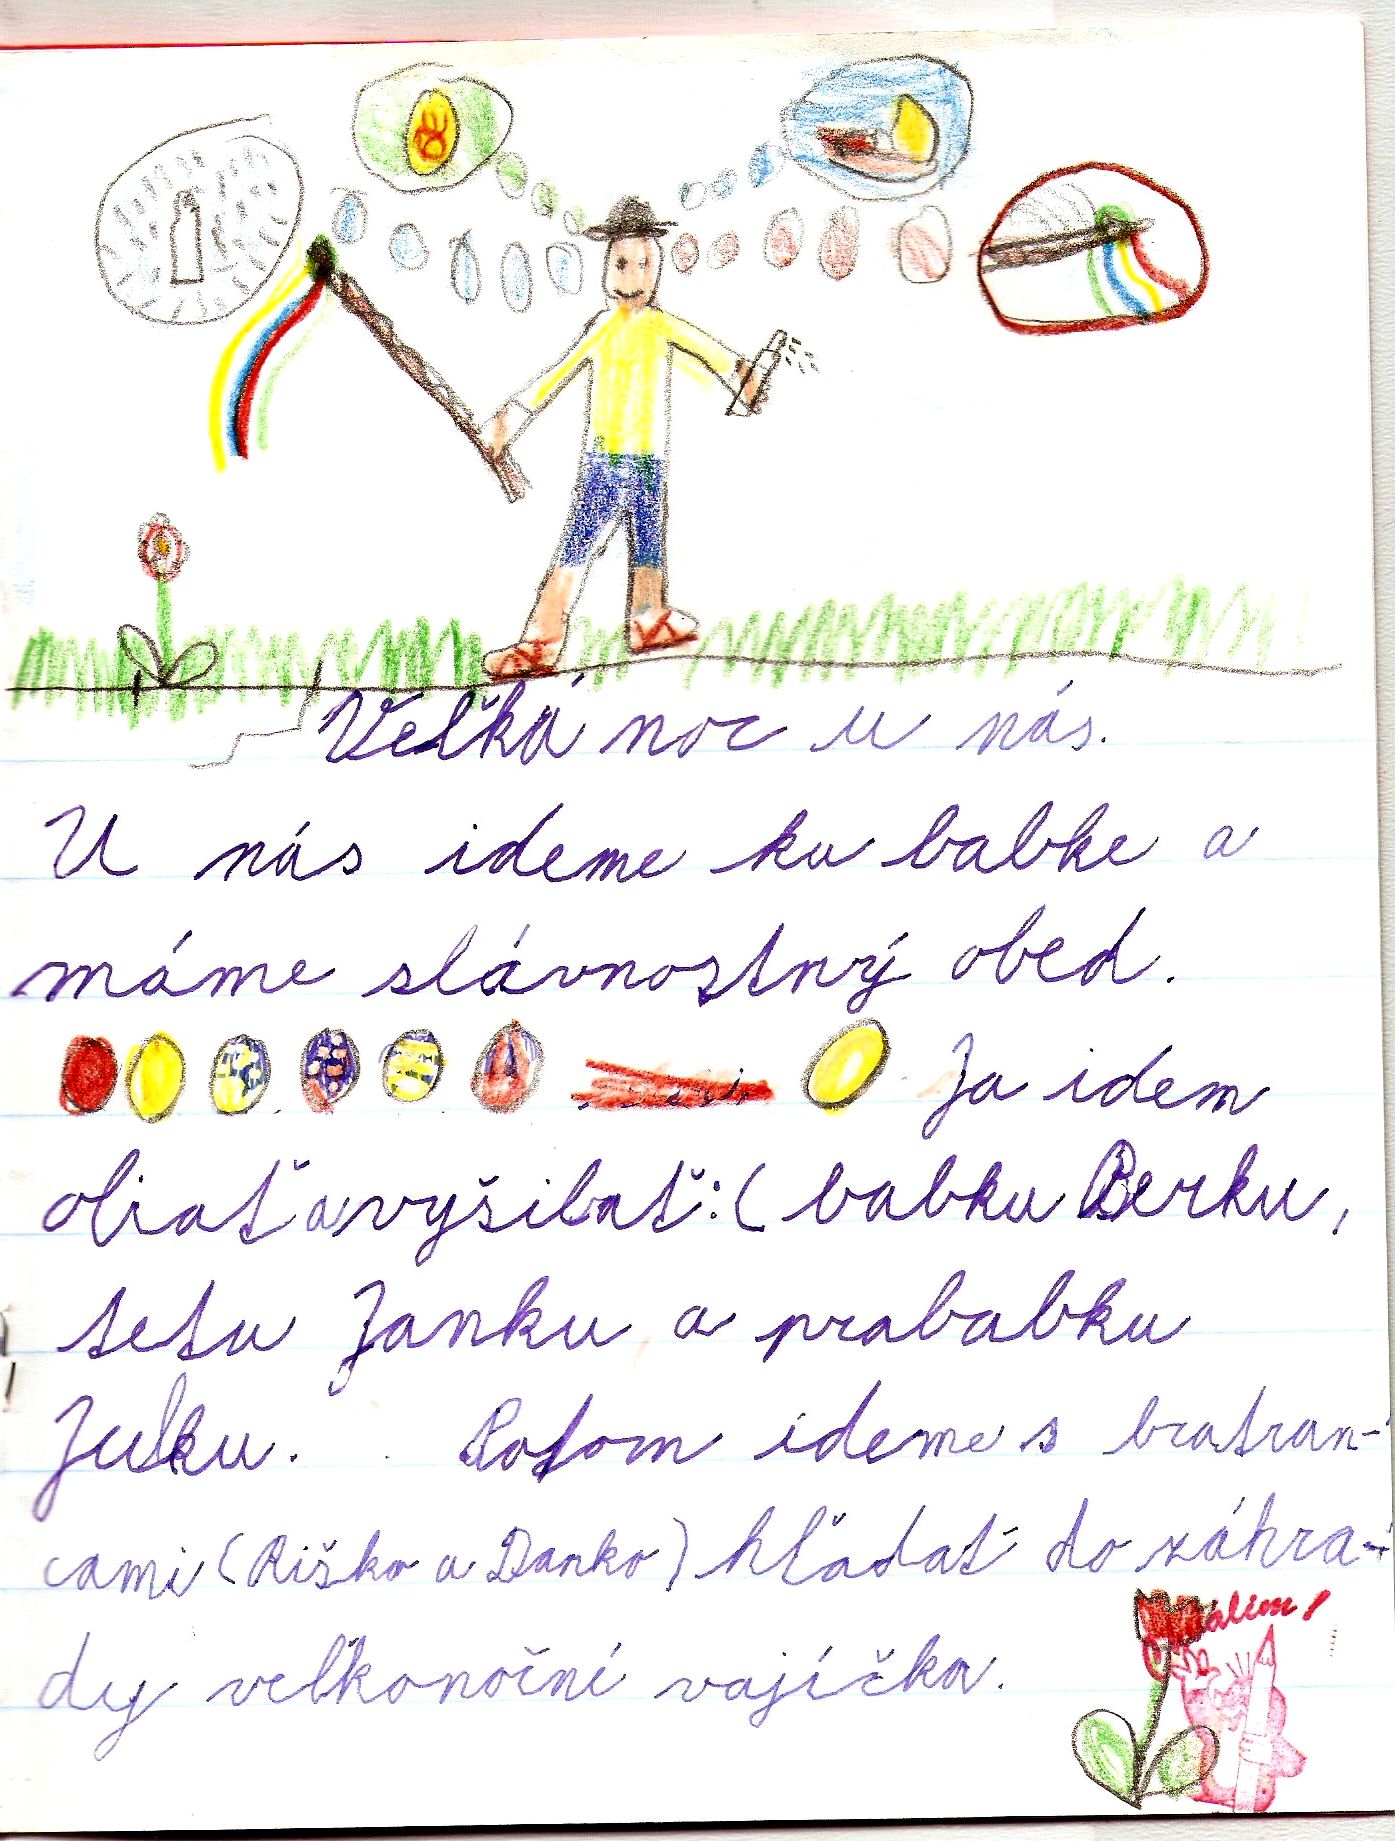 Veľká noc u nás.
U nás ideme ku babke a
máme slávnostný obed.
Ja idem
oliať a vyšibať:( babku Berku,
tetu Janku a prababku
Julku. Potom ideme s bratran-
cami (Riško a Danko) hľadať do záhra-
dy veľkonoční vajíčka.